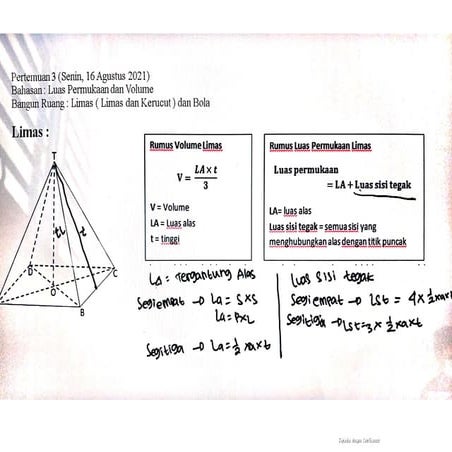 Pertemuan 3 (Senin, 16 Agustus 2021)
Bahasan : Luas Permukaan dan Volume
Bangun Ruang : Limas ( Limas dan Kerucut ) dan Bola
Limas :
T
tL
t
D
C
O
B
Rumus Volume Limas
V = LA x t / 3
V = Volume
LA = Luas alas
t = tinggi
Rumus Luas Permukaan Limas
Luas permukaan
= LA + Luas sisi tegak
LA= luas alas
Luas sisi tegak = semua sisi yang
menghubungkan alas dengan titik puncak
LA = Tergantung Alas
Segiempat → La = s x s
La = P x L
Segitiga → La = ½ x a x t
Luas sisi tegak
Segiempat → Lst = 4 x ½ x a x
Segitiga → Lst = 3 x ½ x a x t